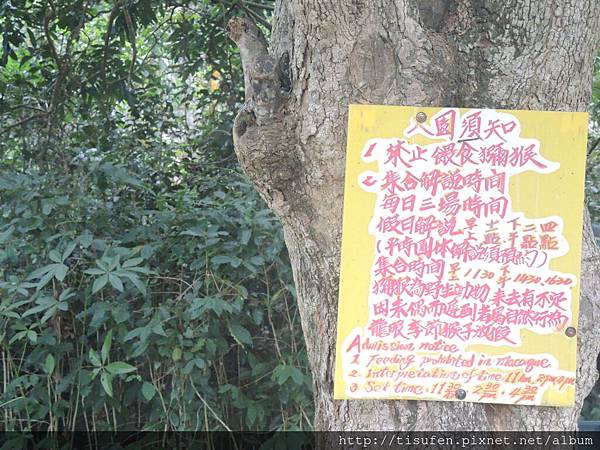 入園須知
1 禁止餵食獼猴
2 集合解說時間
每日三場時間
假日解說 早上十一點 下午二點 四點
(平時團体解說須預約)
集合時間 早上1130 下午1430.1630
獼猴為野生動物 來去有不定
因未偶而遇到者為自然行為
龍眼季節猴子放假
Admission notice
1 Feeding prohibited in macaque
2. Interpretation of time. 11am. 2pm. 4pm.
3. Set time. 11 30 am 2 30 pm 4 30 pm
http://tisufen.pixnet.net/album